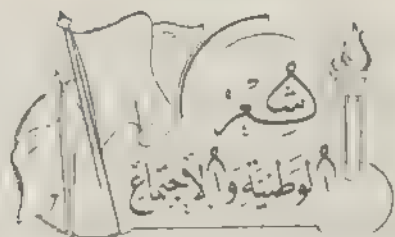 شِعْرُ
ألوَطنيَّةِ وَألاجْتِمَاعِ